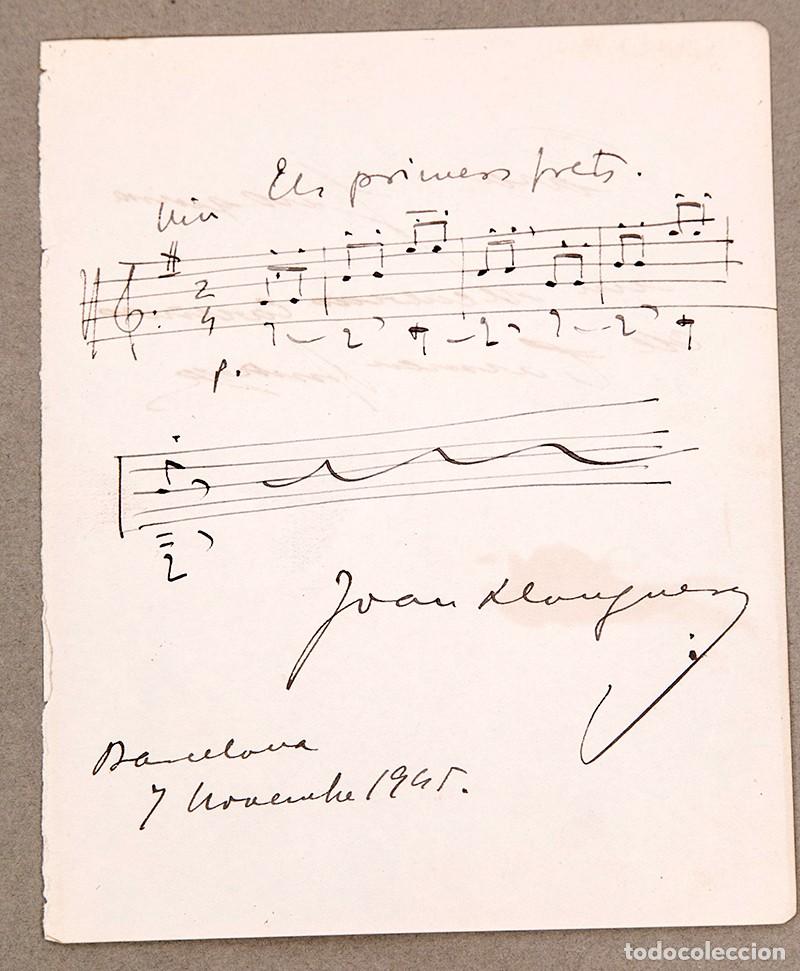 Els primers frets.
Viu
2
4
p.
Joan Llongueres
Barcelona
7 Novembre 1945.
todocoleccion